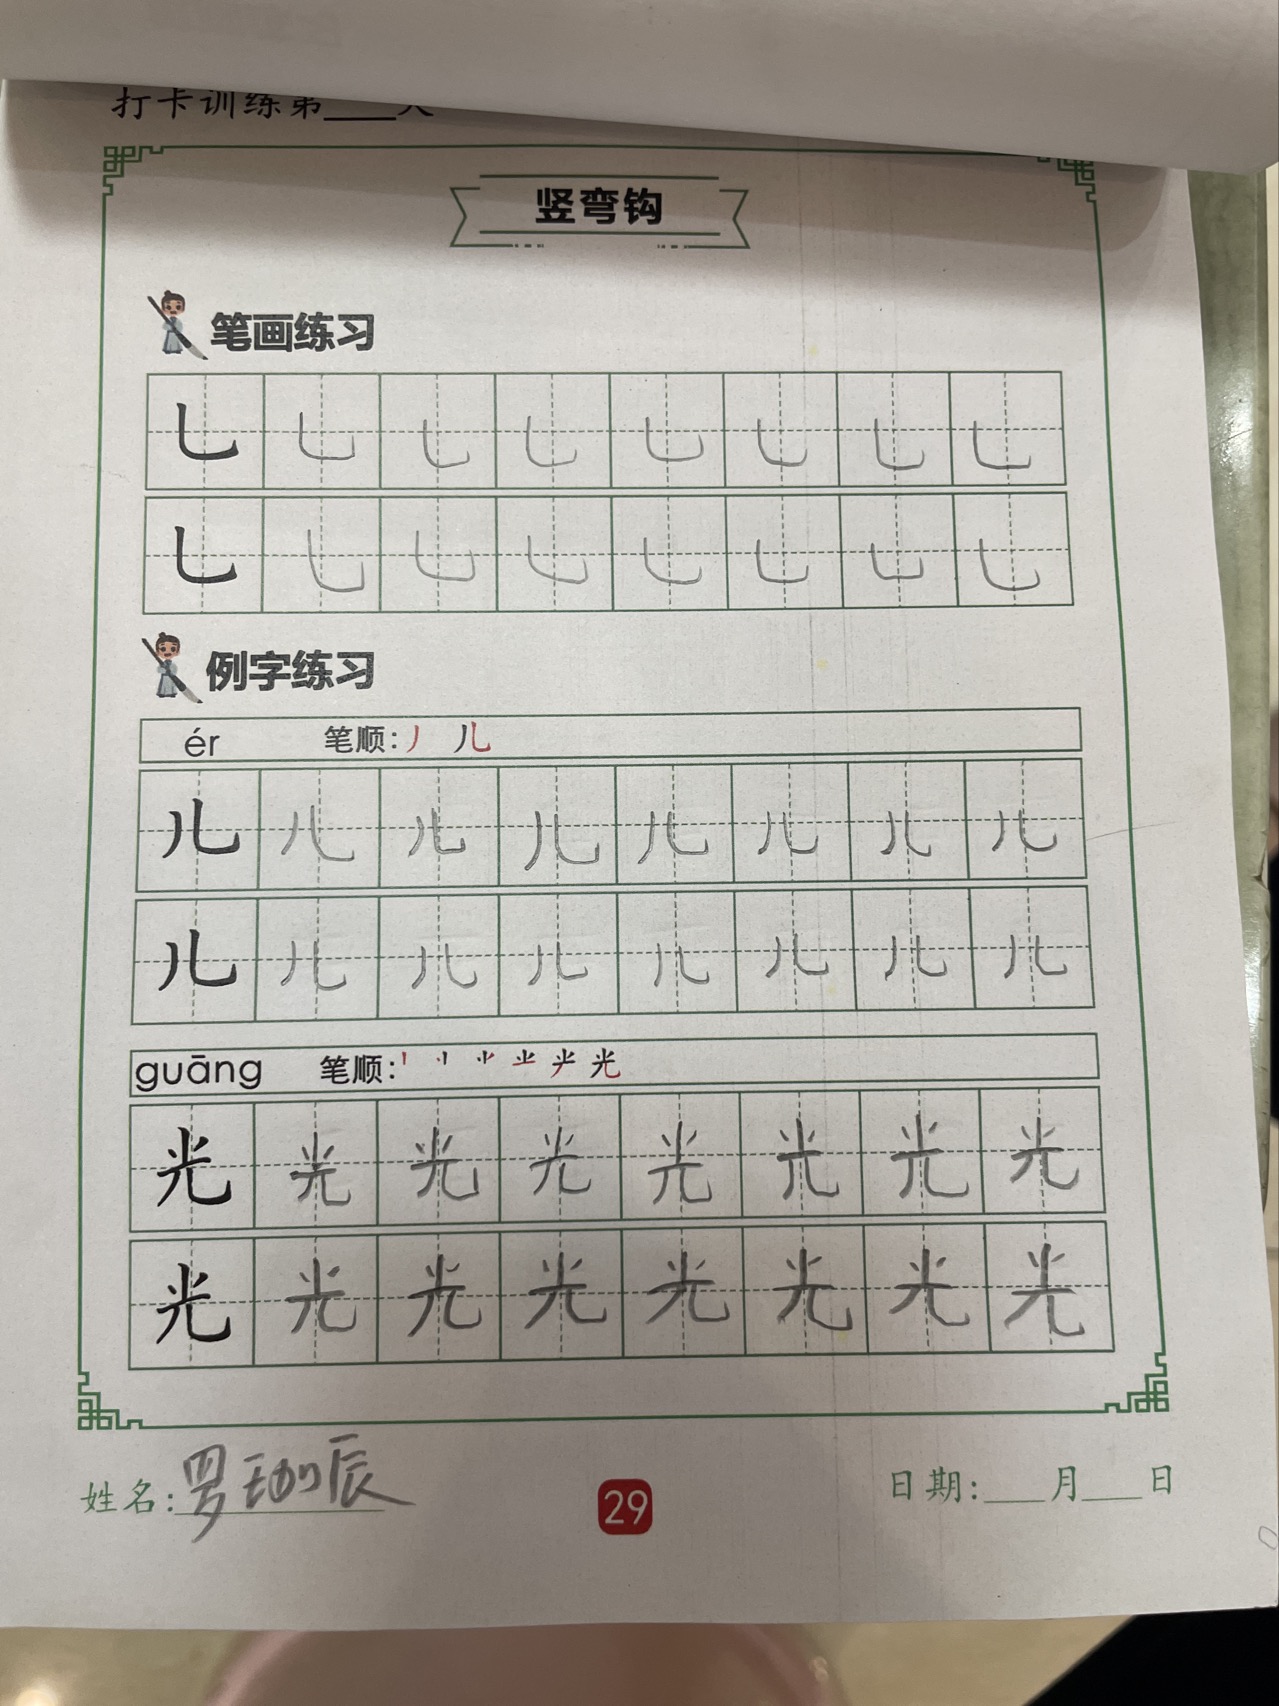 打卡训练第____天
竖弯钩
笔画练习
乚 乚 乚 乚 乚 乚 乚 乚
乚 乚 乚 乚 乚 乚 乚 乚
例字练习
ér 笔顺:丿 儿
儿 儿 儿 儿 儿 儿 儿 儿
儿 儿 儿 儿 儿 儿 儿 儿
guāng 笔顺: 光
光 光 光 光 光 光 光 光
光 光 光 光 光 光 光 光
姓名:罗 辰
29
日期:___月___日